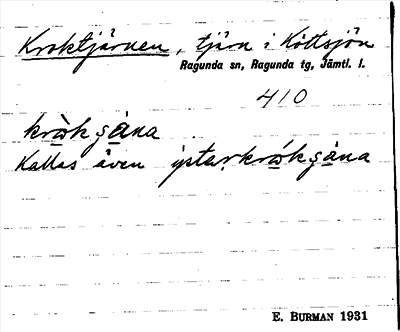 Kroktjärnen, tjärn i Köttsjön
Ragunda sn, Ragunda tg, Jämtl. l.
410
krὼkg̣ạ̀na
Kallas även ystaṛkrὼkg̣ạna
E. BURMAN 1931